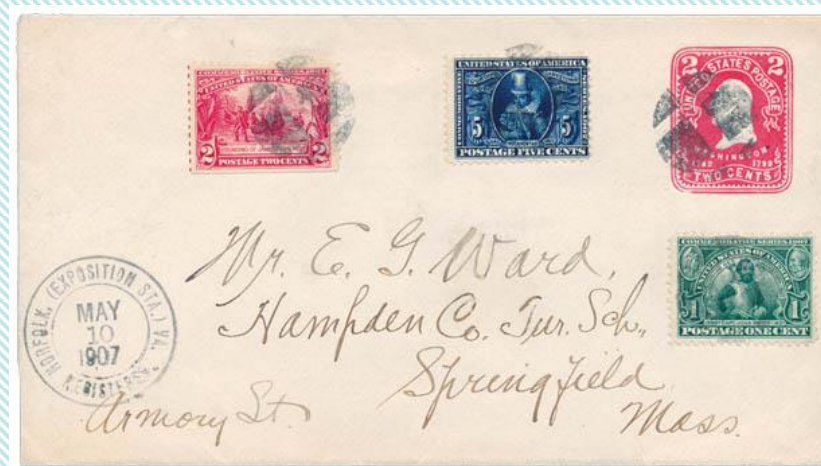 UNITED STATES OF AMERICA
2 2
FOUNDING OF JAMESTOWN
POSTAGE TWO CENTS
UNITED STATES OF AMERICA
5 5
POSTAGE FIVE CENTS
2 2
UNITED STATES POSTAGE
WASHINGTON
1799
TWO CENTS
COMMEMORATIVE SERIES 1907
UNITED STATES OF AMERICA
1 1
POSTAGE ONE CENT
NORFOLK, (EXPOSITION STA.) VA.
MAY
10
1907
REGISTERED
Mr. E. G. Ward,
Hampden Co. Tur. Sch.,
Springfield
Mass.
Armory St.